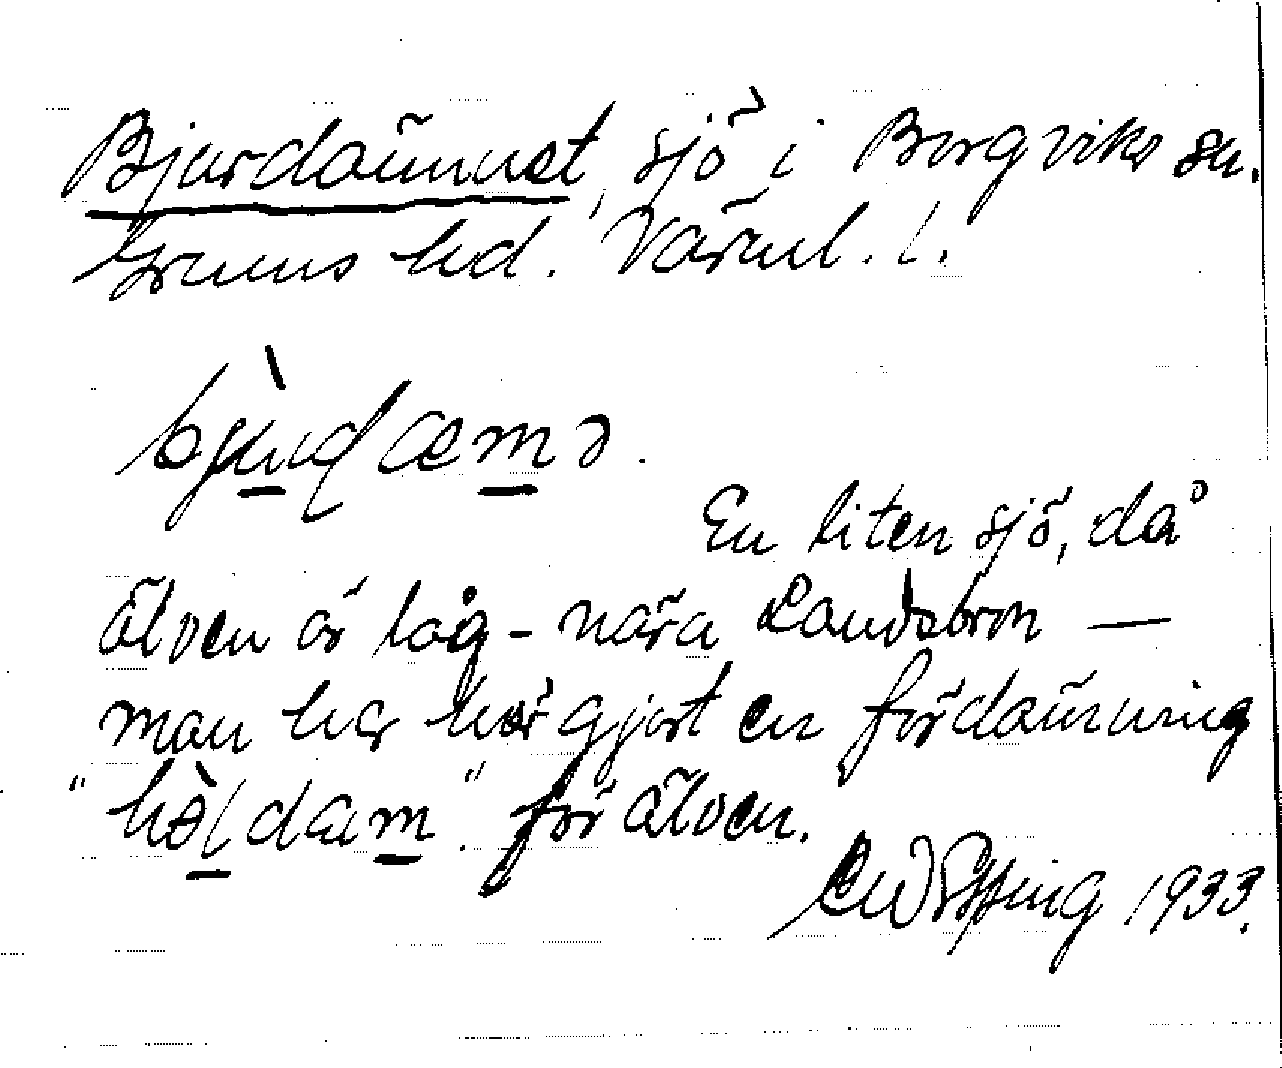 Bjurdämmet, sjö i Borgviks sn.
Grums hd. Värml. l.
En liten sjö, då
älven är låg - nära Landsbron —
man har här gjort en fördämning
"hòldam". för älven.
1933.